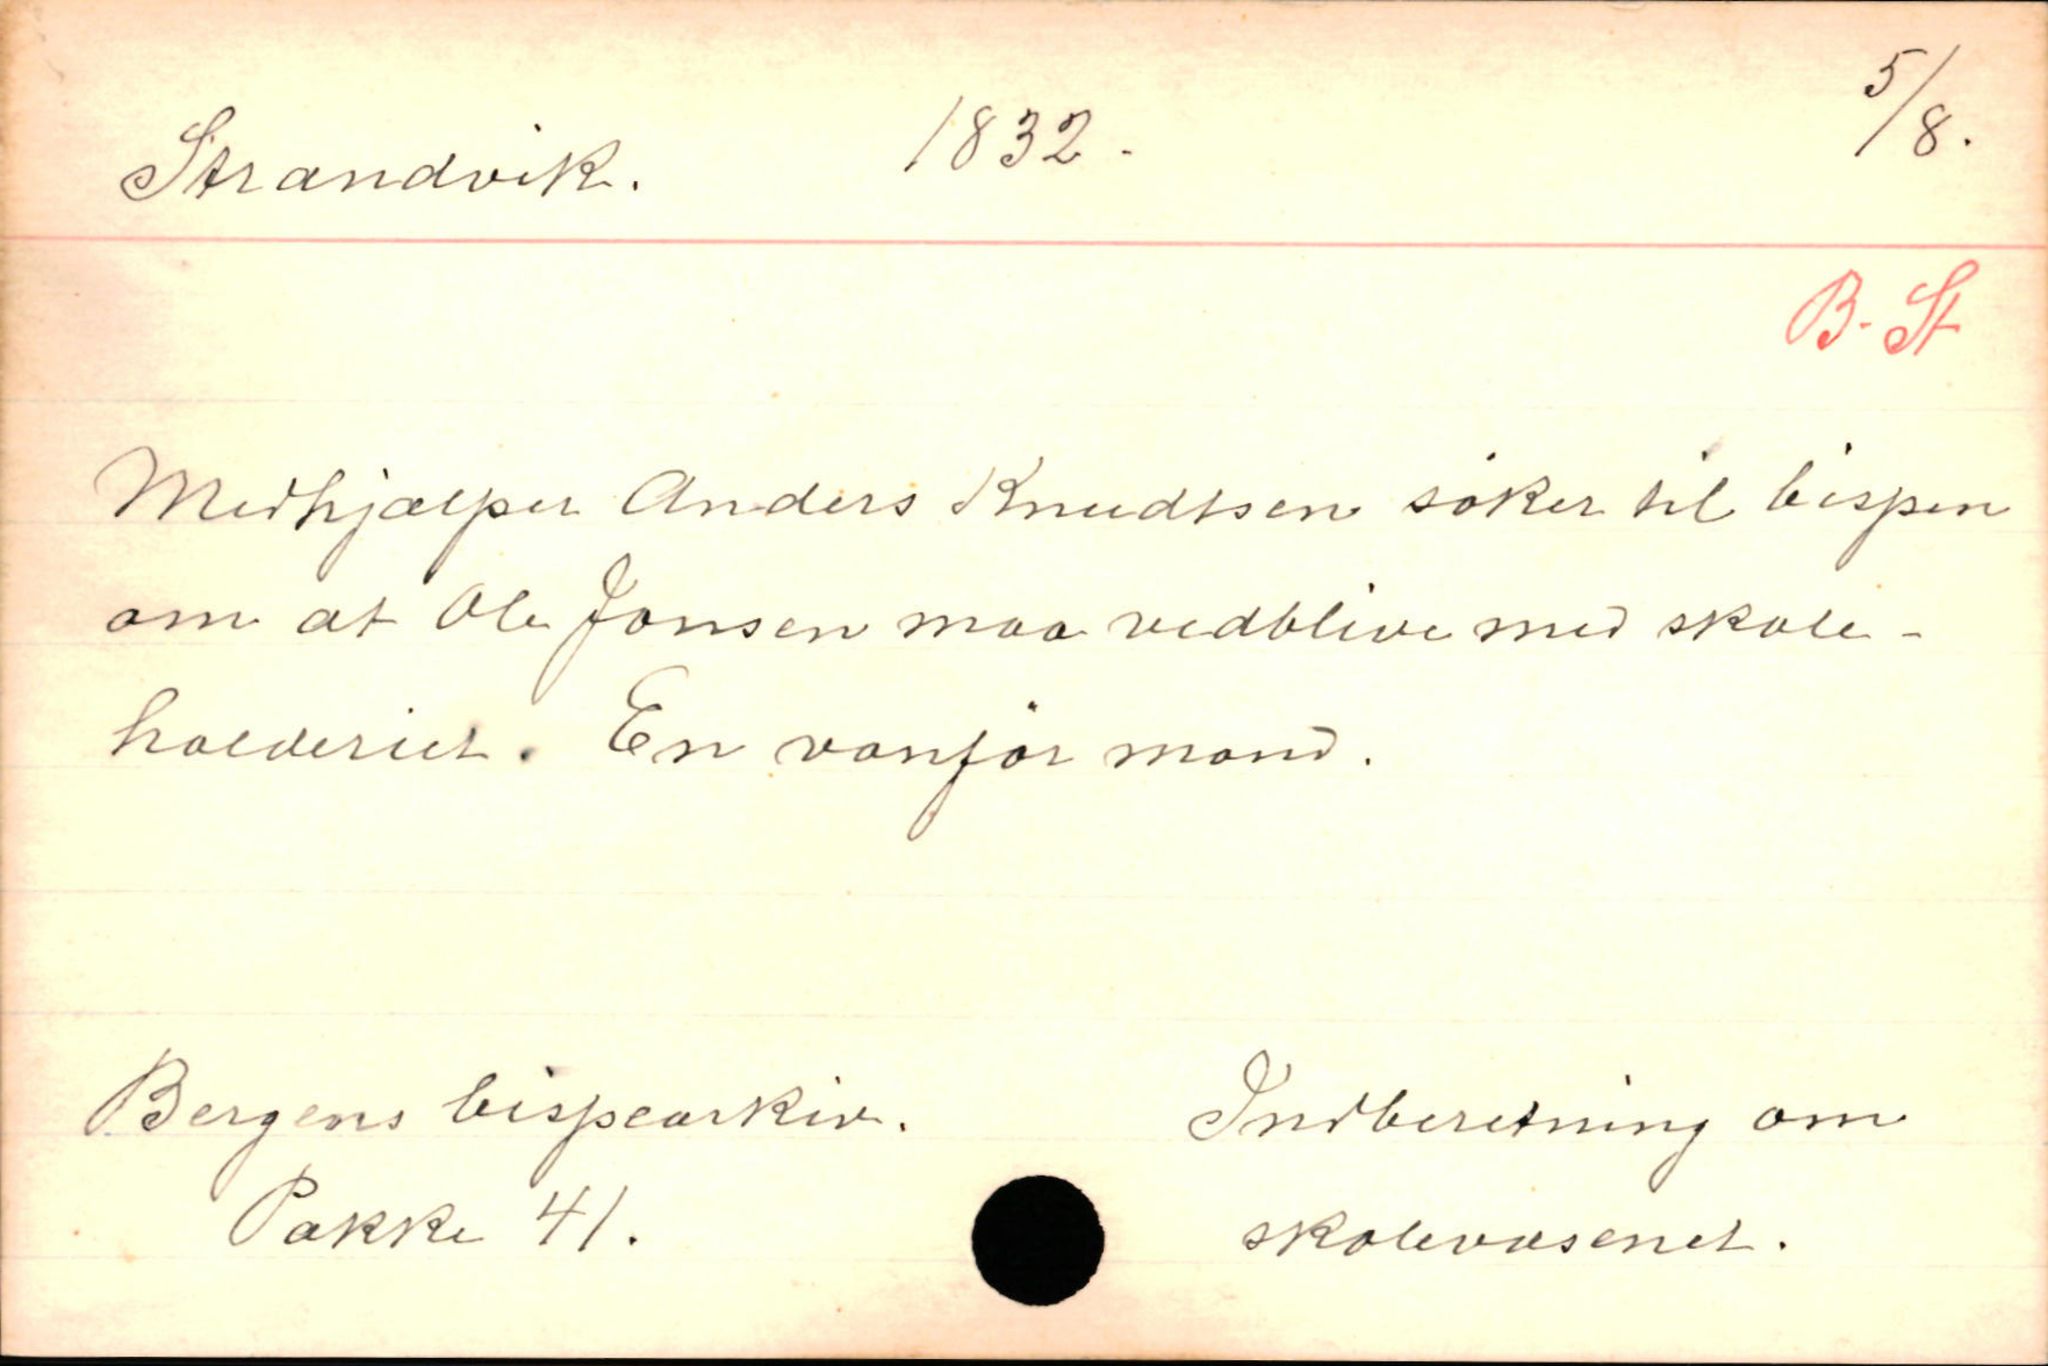 Strandvik. 1832. 5/8.
B. St
Medhjælper Anders Knudtsen søker til bispen
om at Ole Jonsen maa vedblive med skole-
holderiet. En vanfør mand.
Bergens bispearkiv. Indberetning om
Pakke 41. skolevæsenet.